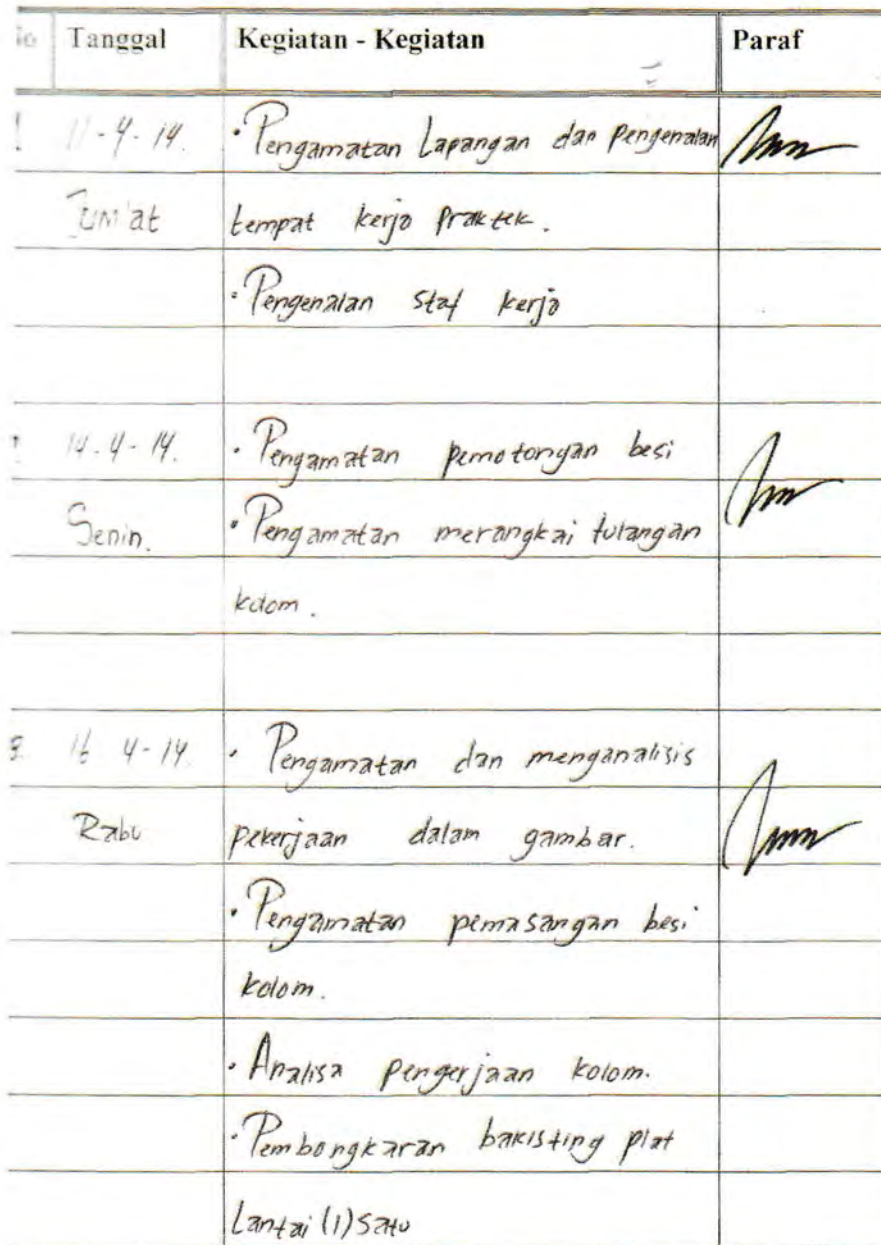 No Tanggal Kegiatan - Kegiatan Paraf
11-4-14. • Pengamatan Lapangan dan pengenalan
Jum'at tempat kerja praktek.
• Pengenalan staf kerja
14-4-14. • Pengamatan pemotongan besi
Senin. • Pengamatan merangkai tulangan
kolom.
3. 16 4-14. • Pengamatan dan menganalisis
Rabu pekerjaan dalam gambar.
• Pengamatan pemasangan besi
kolom.
• Analisa pengerjaan kolom.
• Pembongkaran bakisting plat
Lantai (1) Satu